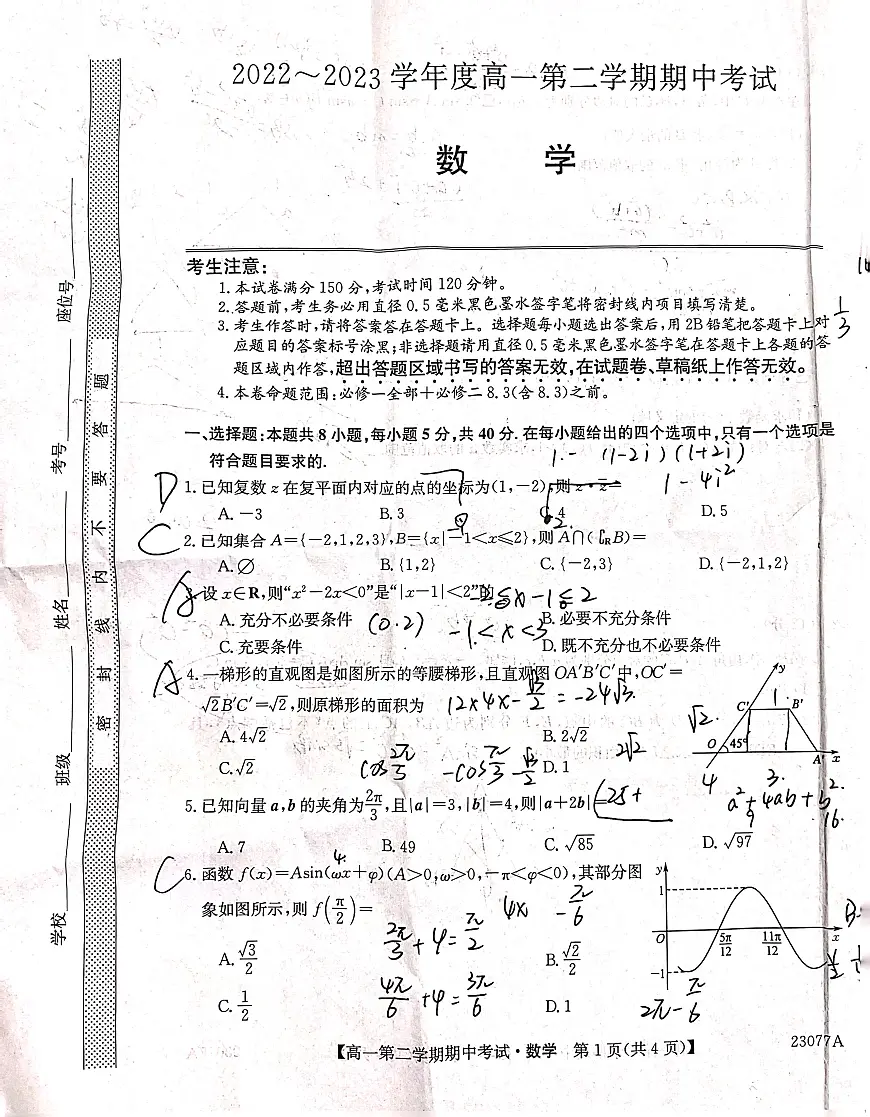 2022～2023学年度高一第二学期期中考试
数 学
考生注意：
1.本试卷满分150分,考试时间120分钟。
2.答题前,考生务必用直径0.5毫米黑色墨水签字笔将密封线内项目填写清楚。
3.考生作答时,请将答案答在答题卡上。选择题每小题选出答案后,用2B铅笔把答题卡上对
应题目的答案标号涂黑;非选择题请用直径0.5毫米黑色墨水签字笔在答题卡上各题的答
题区域内作答,超出答题区域书写的答案无效,在试题卷、草稿纸上作答无效。
4.本卷命题范围:必修一全部+必修二8.3(含8.3)之前。
1/3
一、选择题:本题共8小题,每小题5分,共40分.在每小题给出的四个选项中,只有一个选项是
符合题目要求的.
(1-2i)(1+2i)
1-4i²
D
1.已知复数z在复平面内对应的点的坐标为(1,-2),则z·z̄=
A.-3 B.3 C.4 D.5
C
2.已知集合A={-2,1,2,3},B={x|-1<x≤2},则A∩(∁RB)=
A.∅ B.{1,2} C.{-2,3} D.{-2,1,2}
A
3.设x∈R,则“x²-2x<0”是“|x-1|<2”的
x-1≤2
A.充分不必要条件 B.必要不充分条件
(0.2)
-1<x<3
C.充要条件 D.既不充分也不必要条件
A
4.一梯形的直观图是如图所示的等腰梯形,且直观图OA′B′C′中,OC′=
√2B′C′=√2,则原梯形的面积为
12×4×-√3/2=-24√3
A.4√2 B.2√2
C.√2 D.1
2√2
cos 2π/3 -cos π/3
y
C′ 1 B′
√2.
O 45° A′ x
5.已知向量a,b的夹角为2π/3,且|a|=3,|b|=4,则|a+2b|=
25+
4 3.
a²+4ab+b²
9 16.
A.7 B.49 C.√85 D.√97
C
6.函数f(x)=Asin(ωx+φ)(A>0,ω>0,-π<φ<0),其部分图
象如图所示,则f(π/2)=
4x -π/6
A.√3/2 B.√2/2
2π/3+φ=π/2
C.1/2 D.1
4π/6+φ=3π/6
2π-π/6
y
1
O 5π/12 11π/12 x
-1
B.
【高一第二学期期中考试·数学 第1页(共4页)】
23077A
学校
班级
姓名
考号
座位号
密 封 线 内 不 要 答 题